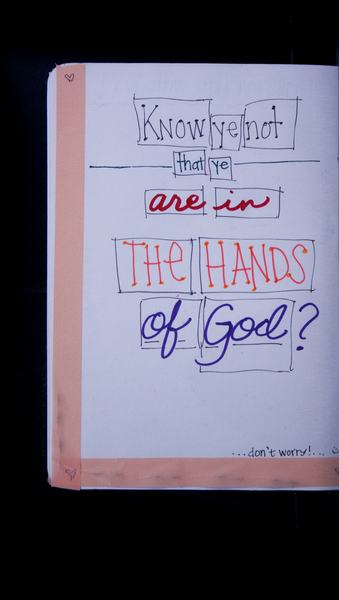 Know ye not
that ye
are in
THE HANDS
of God?
...don't worry!...